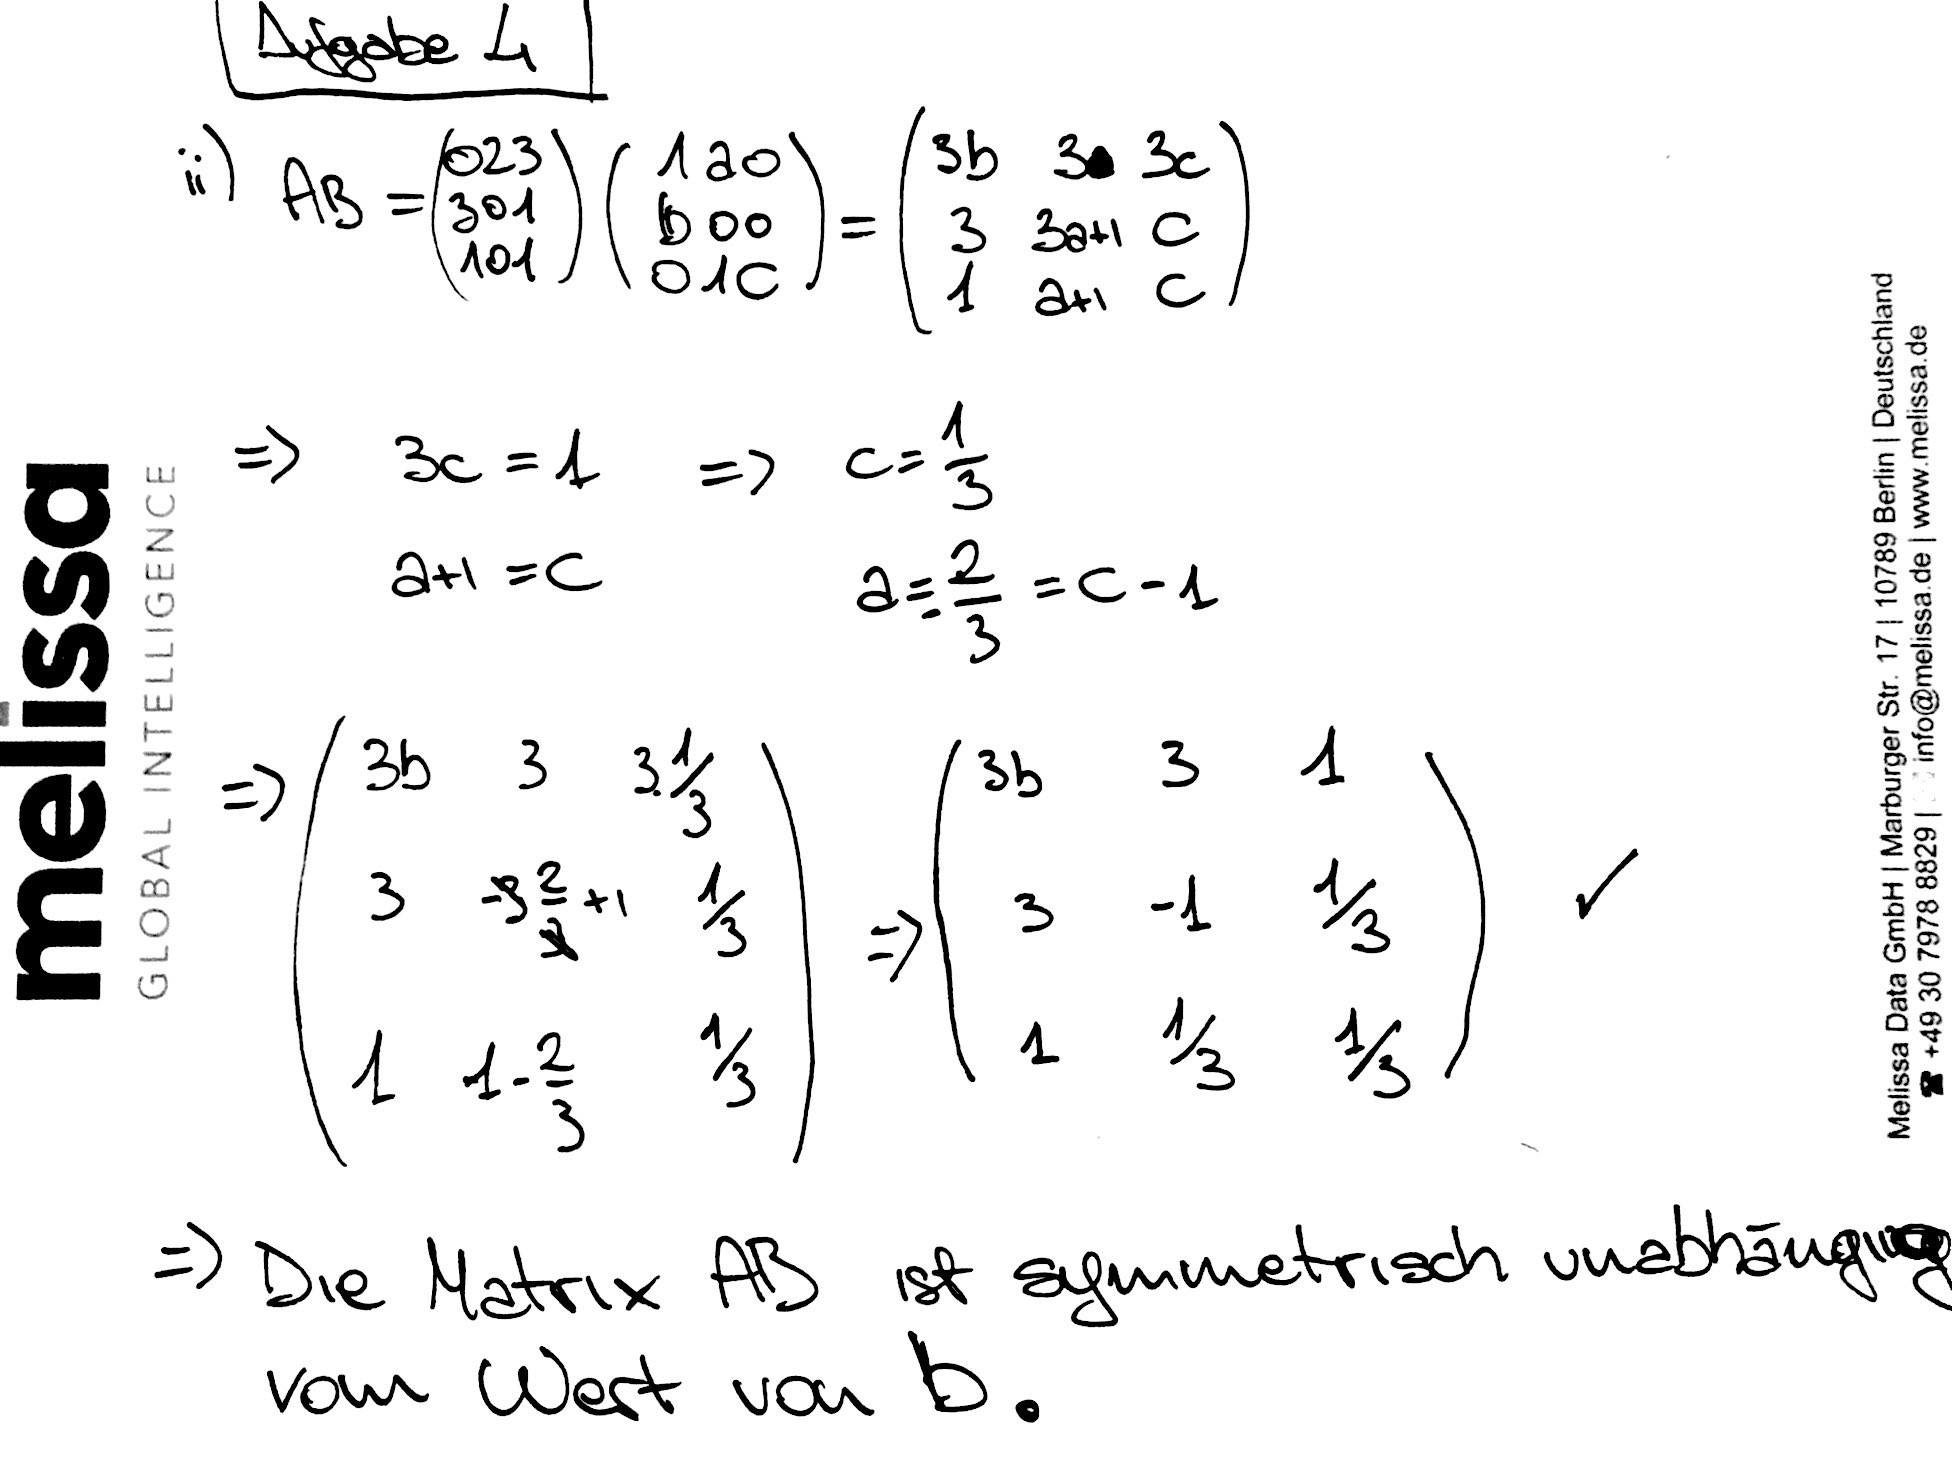 Aufgabe 4
ii) AB = (023 301 101) (1a0 b00 01C) = (3b 3 3c
3 3a+1 C
1 a+1 C)
=> 3c = 1 => c = 1/3
a+1 = C a = -2/3 = C - 1
=> (3b 3 3·1/3
3 -3 2/3 +1 1/3
1 1-2/3 1/3)
=> (3b 3 1
3 -1 1/3
1 1/3 1/3) ✓
=> Die Matrix AB ist symmetrisch unabhängig
vom Wert von b.
melissa
GLOBAL INTELLIGENCE
Melissa Data GmbH | Marburger Str. 17 | 10789 Berlin | Deutschland
☎ +49 30 7978 8829 | info@melissa.de | www.melissa.de